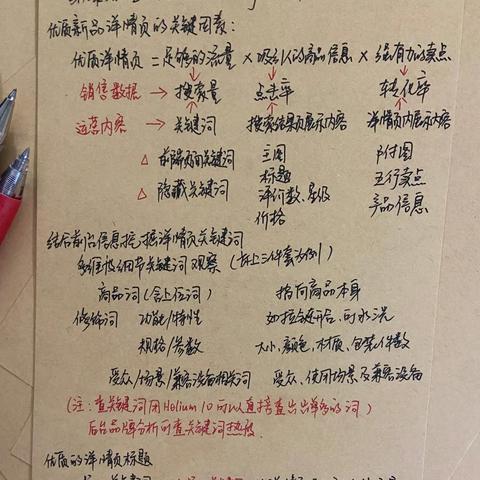 优质新品详情页的关键因素：
优质详情页 = 足够的流量 × 吸引人的商品信息 × 强有力的卖点
销售数据 → 搜索量 点击率 转化率
运营内容 → 关键词 搜索结果页展示内容 详情页内展示内容
△ 前端页面关键词 主图 附图
标题 五行卖点
△ 隐藏关键词 评价数、星级 产品信息
价格
结合前台信息挖掘详情页关键词
多维极细节关键词观察（床上三件套为例）
商品词（含上位词） 指向商品本身
修饰词 功能/特性 如拉链开合、可水洗
规格/参数 大小、颜色、材质、包装件数
受众/场景/兼容设备相关词 受众、使用场景及兼容设备
（注：查关键词用Helium 10可以直接查出出单多的词）
后台品牌分析可查关键词热搜
优质的详情页标题